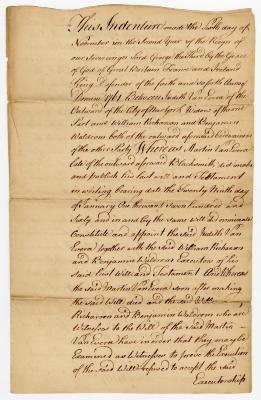 This Indenture made the Sixth day of
November in the Second Year of the Reign of
our Sovereign Lord George the Third by the Grace
of God of Great Britain France and Ireland
King Defender of the faith and so forth Annoq
Domini 1761 Between Judith Van Evora of the
outward of the City of New York Widow of the one
Part and William Richarson and Benjamin
Waldrom both of the outward aforesaid
of the other Party Whereas Martin Van Evora
late of the outward aforesaid Blacksmith did make
and publish his last will and Testament
in writing bearing date the Twenty Ninth day
of January One thousand Seven hundred and
Sixty and in and by the same will did nominate
Constitute and appoint the said Judith Van
Evora together with the said William Richarson
and Benjamin Waldrom Executors of his
said last Will and Testament And Whereas
the said Martin Van Evora soon after making
the said Will died and the said William
Richarson and Benjamin Waldrom who are
Witnesses to the Will of the said Martin
Van Evora have in order that they may be
Examined as Witnesses to prove the Execution
of the said Will refused to accept the said
Executorship